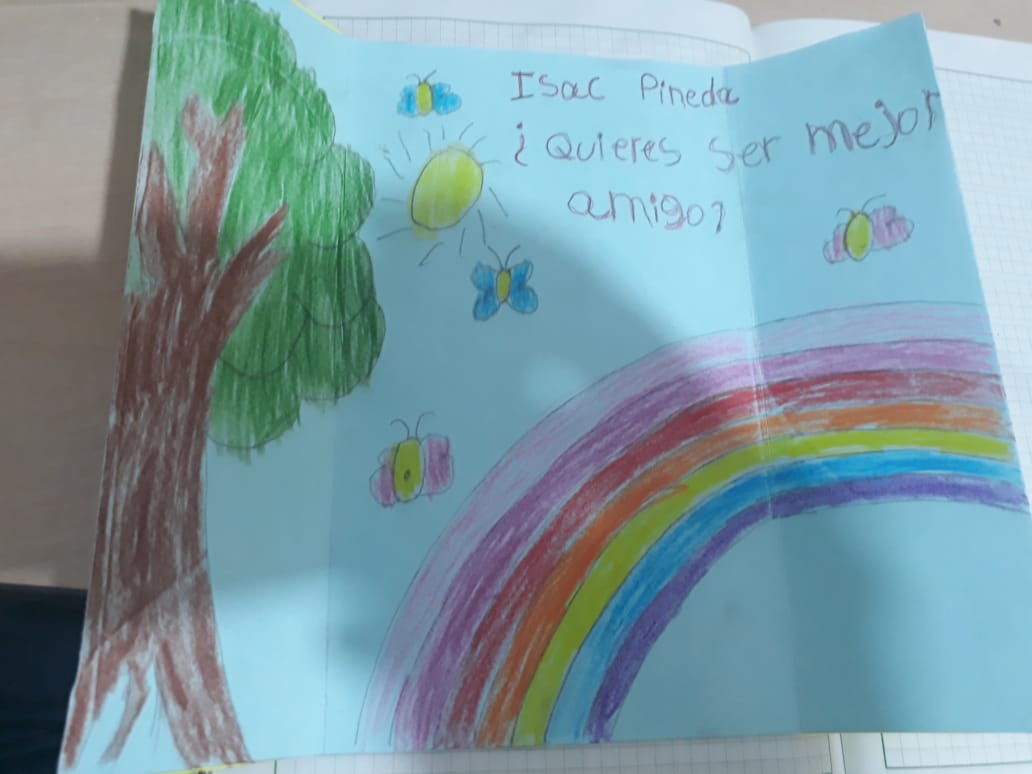 Isac Pineda
¿Quieres ser mejor
amigo?